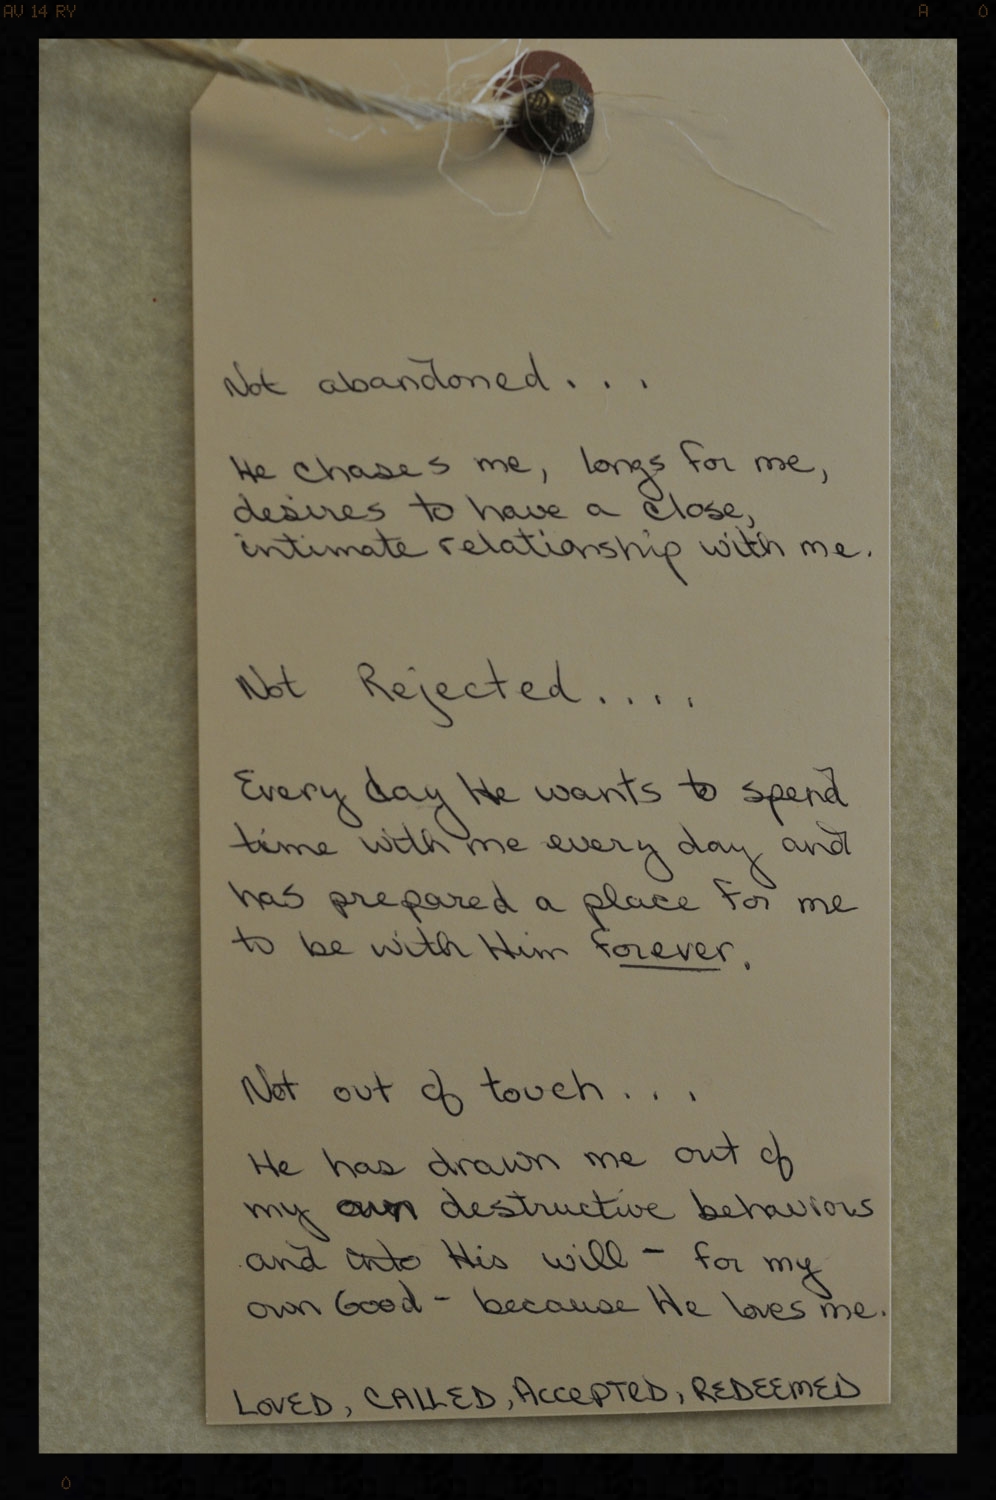 AV 14 RY
A 0
Not abandoned...
He chases me, longs for me,
desires to have a close,
intimate relationship with me.
Not Rejected....
Every day He wants to spend
time with me every day and
has prepared a place for me
to be with Him forever.
Not out of touch...
He has drawn me out of
my own destructive behaviors
and into His will - for my
own Good - because He loves me.
LOVED, CALLED, AccePTED, REDEEMED
0